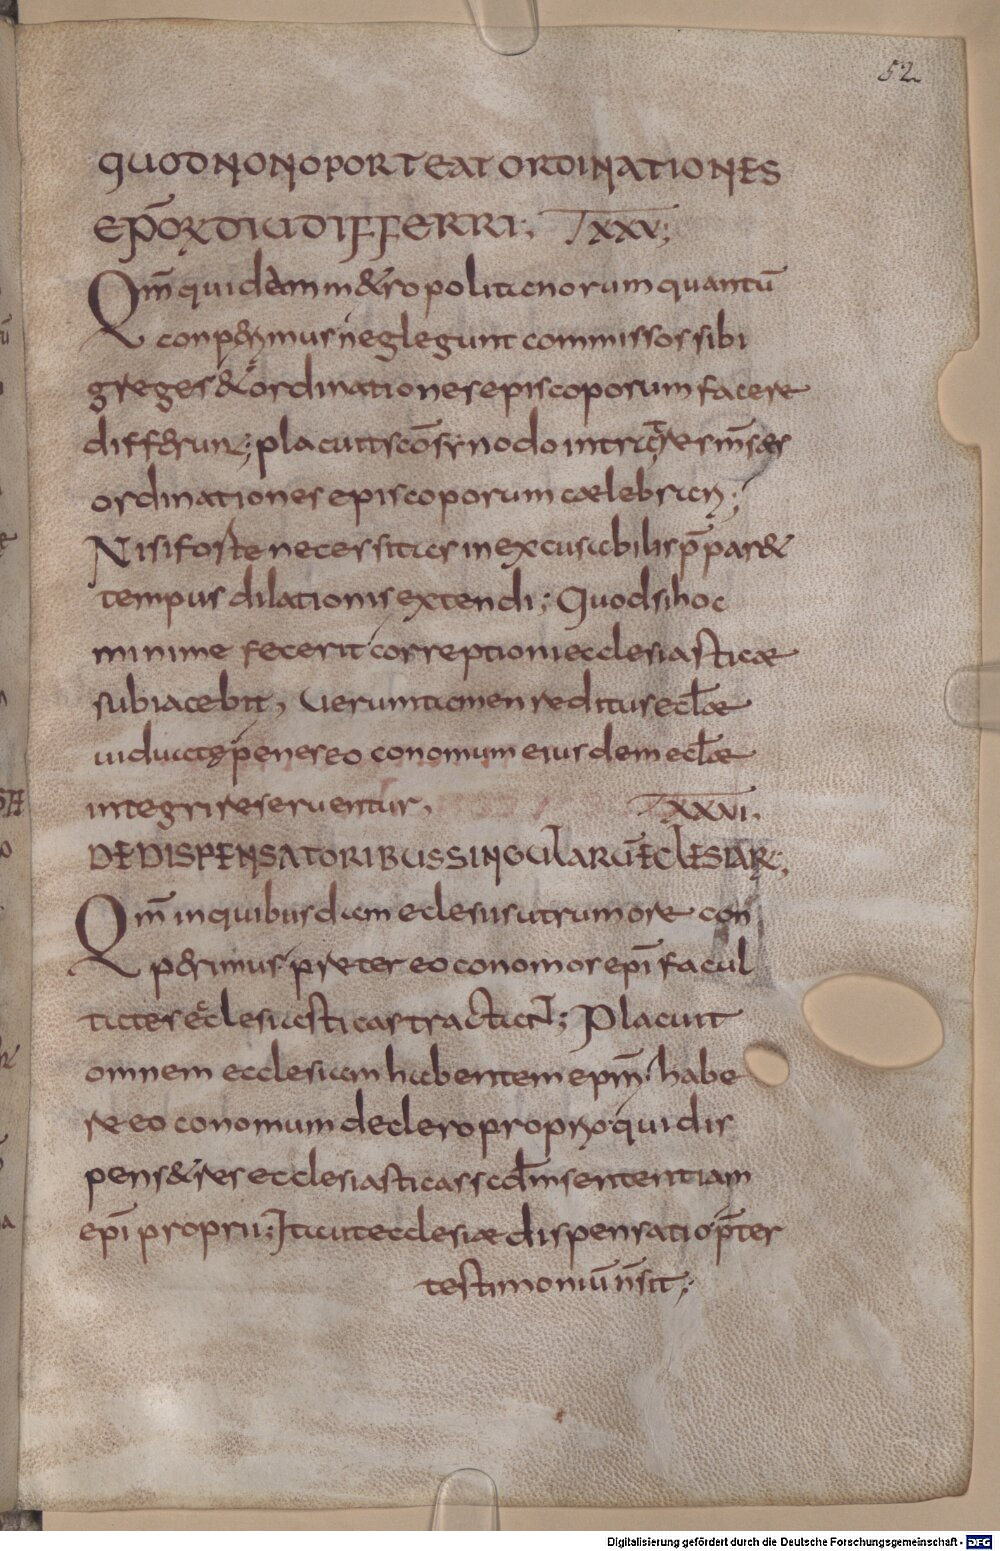 52
QUOD NON OPORTEAT ORDINATIONES
EP̄ORꝜ DIU DIFFERRI; T̄ XXV;
Qm̄ quidam in &ropolitanorum quantū
conperimus neglegunt commissos sibi
greges & ordinationes episcoporum facere
differunt; placuit scō synodo intra tres mēses
ordinationes episcoporum caelebrari;
Nisi forte necessitas inexcusabilis p̄par&
tempus dilationis extendi; Quod si hoc
minime fecerit correptioni ecclesiasticae
subiacebit, Ueruntamen reditus eccƚae
uiduatę penes eoconomum eiusdem eccƚae
integri reseruentur, T̄ XXVI.
DE DISPENSATORIBUS SINGULARŪ ECLESIAR;
Qm̄ in quibusdam eclesiis ut rumore con
perimus preter eoconomos ep̄i facul
tates ecclesiasticas tractant; Placuit
omnem ecclesiam habentem ep̄m habe
re eoconomum de clero proprio qui dis
pens& res ecclesiasticas scdm sententiam
ep̄i proprii; Ita ut ecclesiae dispensatio p̄ter
testimoniū n̄ sit;
Digitalisierung gefördert durch die Deutsche Forschungsgemeinschaft - DFG